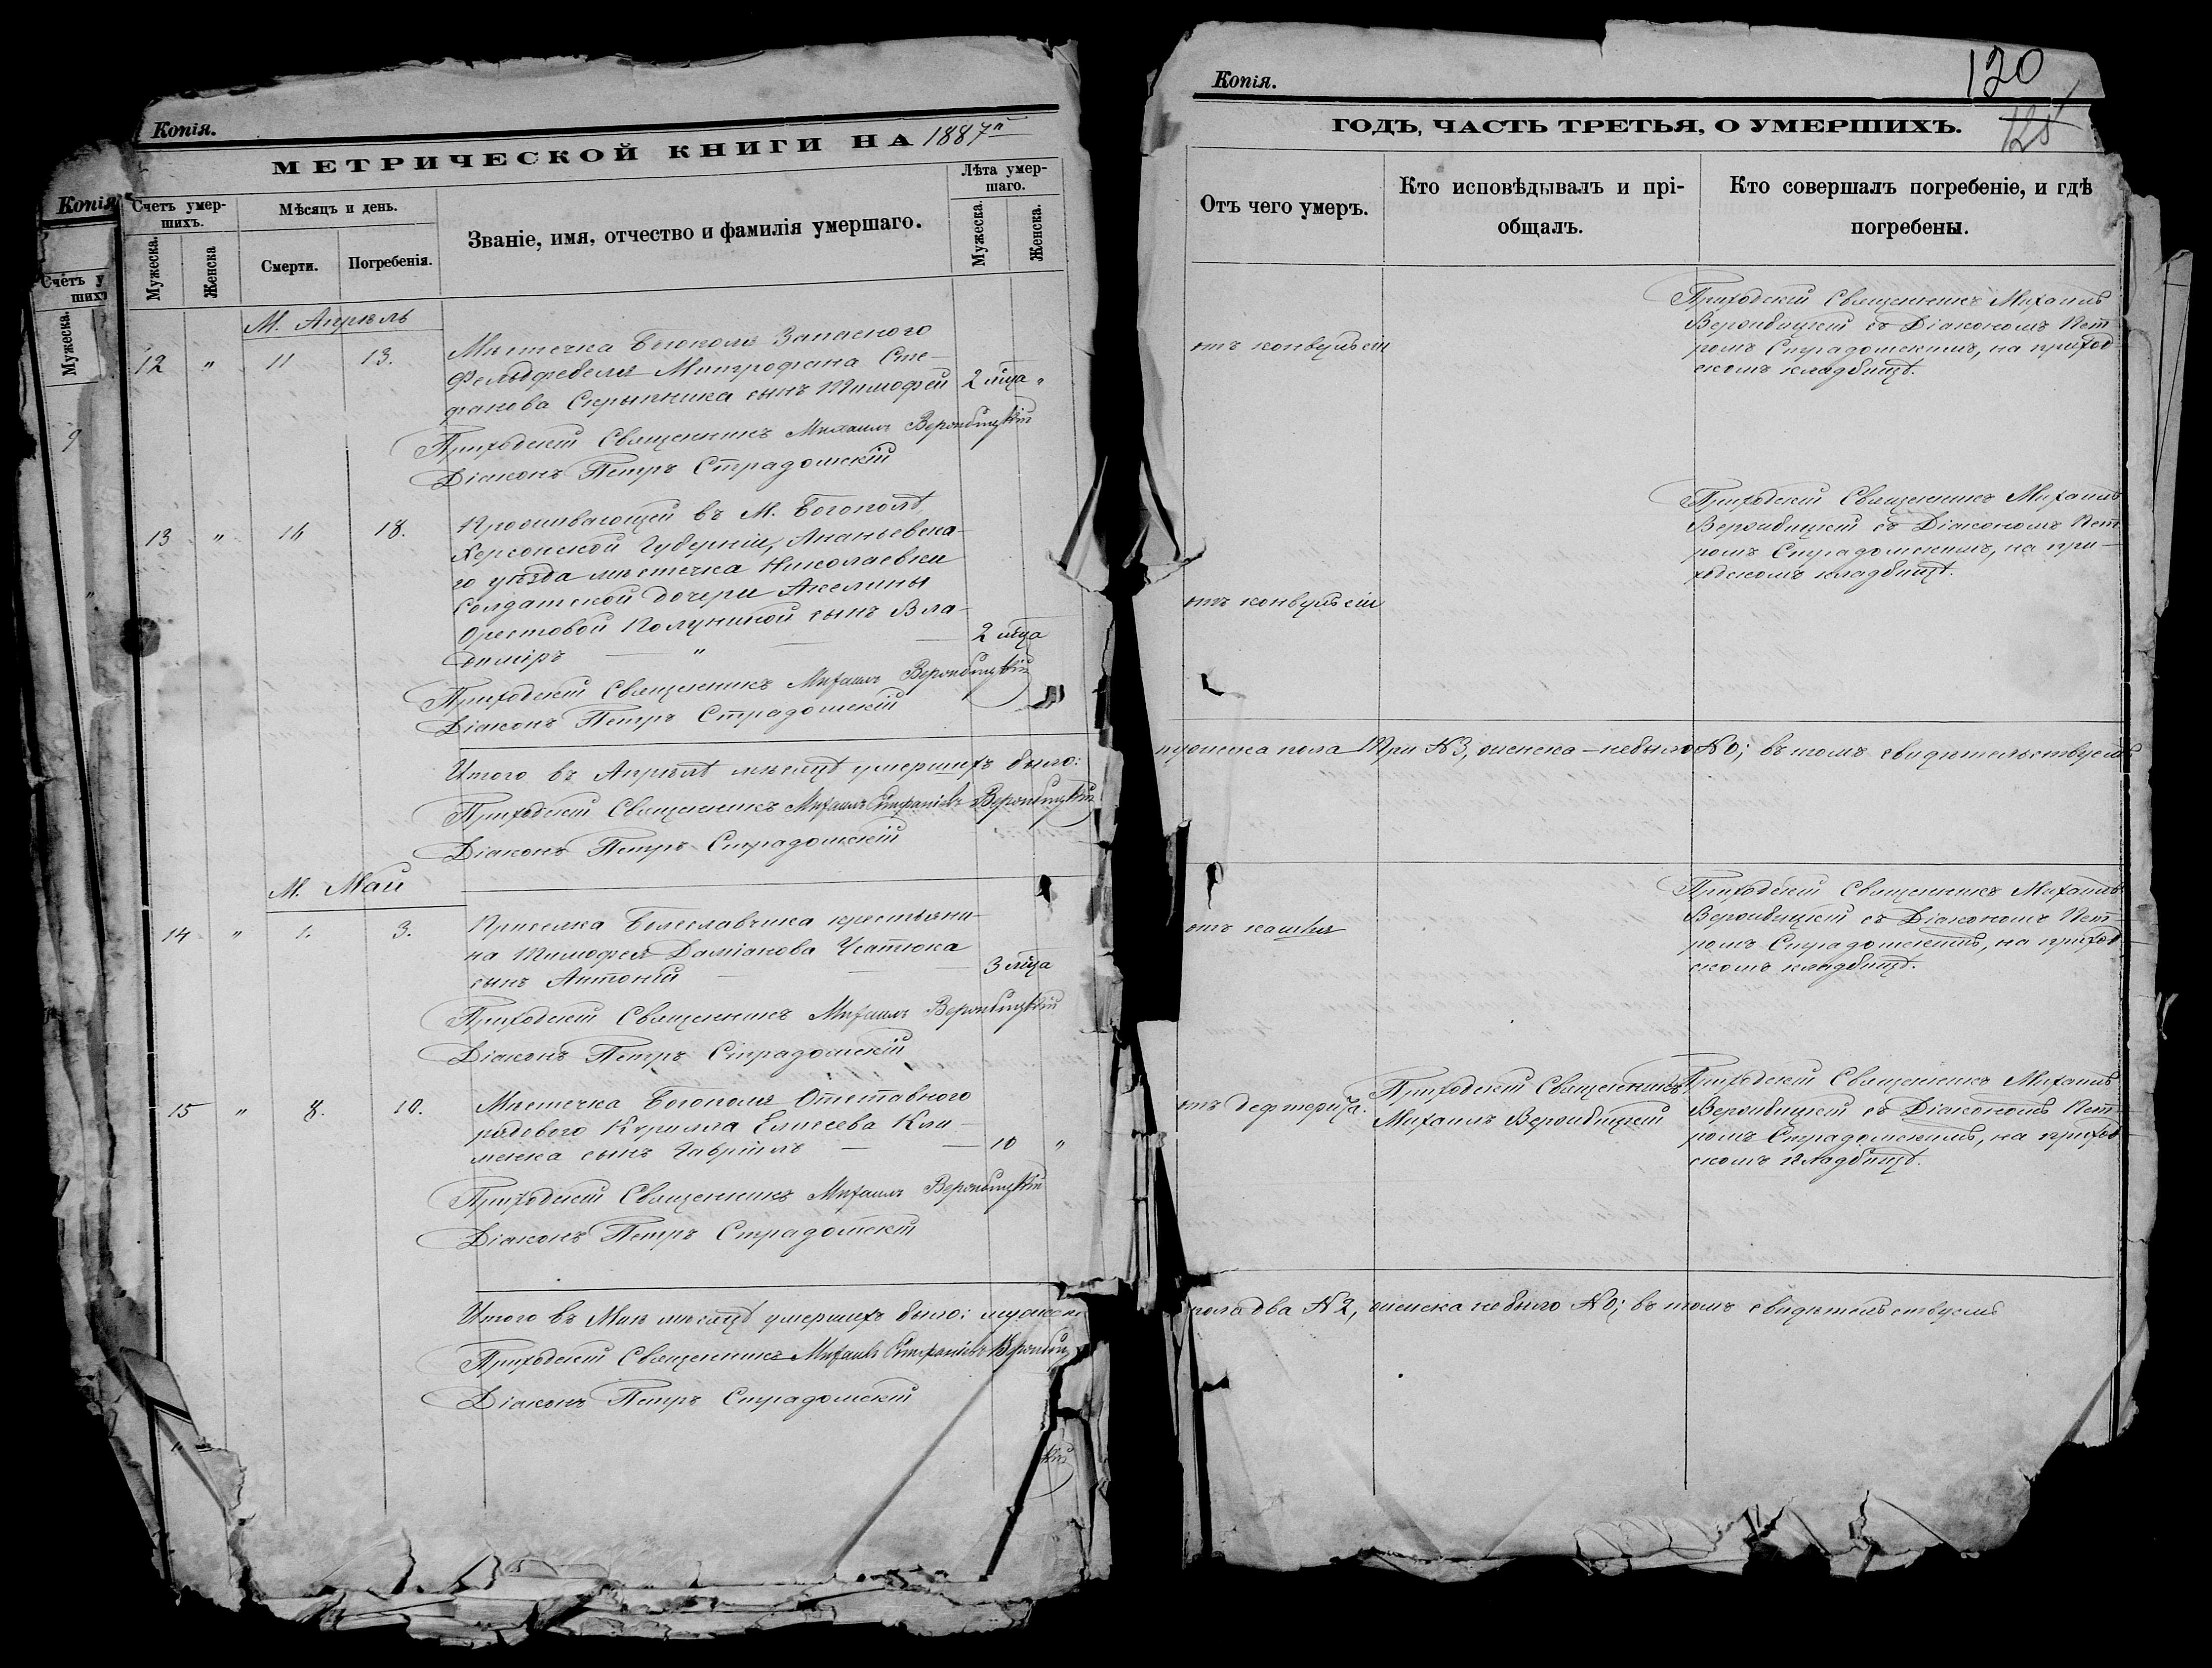 Копія.
МЕТРИЧЕСКОЙ КНИГИ НА 1887й
Копія
Счетъ у
шихъ
Мужеска.
9
Счетъ умер-
шихъ.
Мужеска.
Женска
Мѣсяцъ и день.
Смерти.
Погребенія.
Званіе, имя, отчество и фамилія умершаго.
Лѣта умер-
шаго.
Мужеска.
Женска.
М. Апрѣль
12 " 11 13.
Мѣстечка Богополя Запаснаго
Фельдфебеля Митрофана Сте-
фанова Скрыпника сынъ Тимофей 2 мѣца "
Приходскій Священникъ Михаилъ Вероибицкій
Діаконъ Петръ Страдомскій
13 " 16 18.
Проживающей въ М. Богополѣ,
Херсонской Губерніи, Ананьевска-
го уѣзда мѣстечка Николаевки
Солдатской дочери Акелины
Орестовой Полуниной сынъ Вла-
диміръ — " — 2 мѣца
Приходскій Священникъ Михаилъ Вероибицкій
Діаконъ Петръ Страдомскій
Итого въ Апрѣлѣ мѣсяцѣ умершихъ было:
Приходскій Священникъ Михаилъ Вероибицкій
Діаконъ Петръ Страдомскій
М. Май
14 " 1. 3.
Приселка Болеславчика крестьяни-
на Тимофея Даміанова Усатюка
сынъ Антоній — 3 мѣца
Приходскій Священникъ Михаилъ Вероибицкій
Діаконъ Петръ Страдомскій
15 " 8. 10.
Мѣстечка Богополя Отставного
рядового Кирилла Елисеева Кли-
менка сынъ Гавріилъ — 10 "
Приходскій Священникъ Михаилъ Вероибицкій
Діаконъ Петръ Страдомскій
Итого въ Маѣ мѣсяцѣ умершихъ было: мужеска
Приходскій Священникъ Михаилъ
Діаконъ Петръ Страдомскій
кій
Копія.
120
125
ГОДЪ, ЧАСТЬ ТРЕТЬЯ, О УМЕРШИХЪ.
Отъ чего умеръ.
Кто исповѣдывалъ и прі-
общалъ.
Кто совершалъ погребеніе, и гдѣ
погребены.
отъ конвульсіи
Приходскій Священникъ Михаилъ
Вероибицкій съ Діакономъ Пет-
ромъ Страдомскимъ, на приход-
скомъ кладбищѣ.
отъ конвульсіи
Приходскій Священникъ Михаилъ
Вероибицкій съ Діакономъ Пет-
ромъ Страдомскимъ, на при-
ходскомъ кладбищѣ.
мужеска пола Три №3, женска — небыло №0; въ томъ свидѣтельствуемъ
отъ кашля
Приходскій Священникъ Михаилъ
Вероибицкій съ Діакономъ Пет-
ромъ Страдомскимъ, на приход-
скомъ кладбищѣ.
отъ дефтерита.
Приходскій Священникъ
Михаилъ Вероибицкій
Приходскій Священникъ Михаилъ
Вероибицкій съ Діакономъ Пет-
ромъ Страдомскимъ, на приход-
скомъ кладбищѣ.
пола два №2, женска небыло №0; въ томъ свидѣтельствуемъ